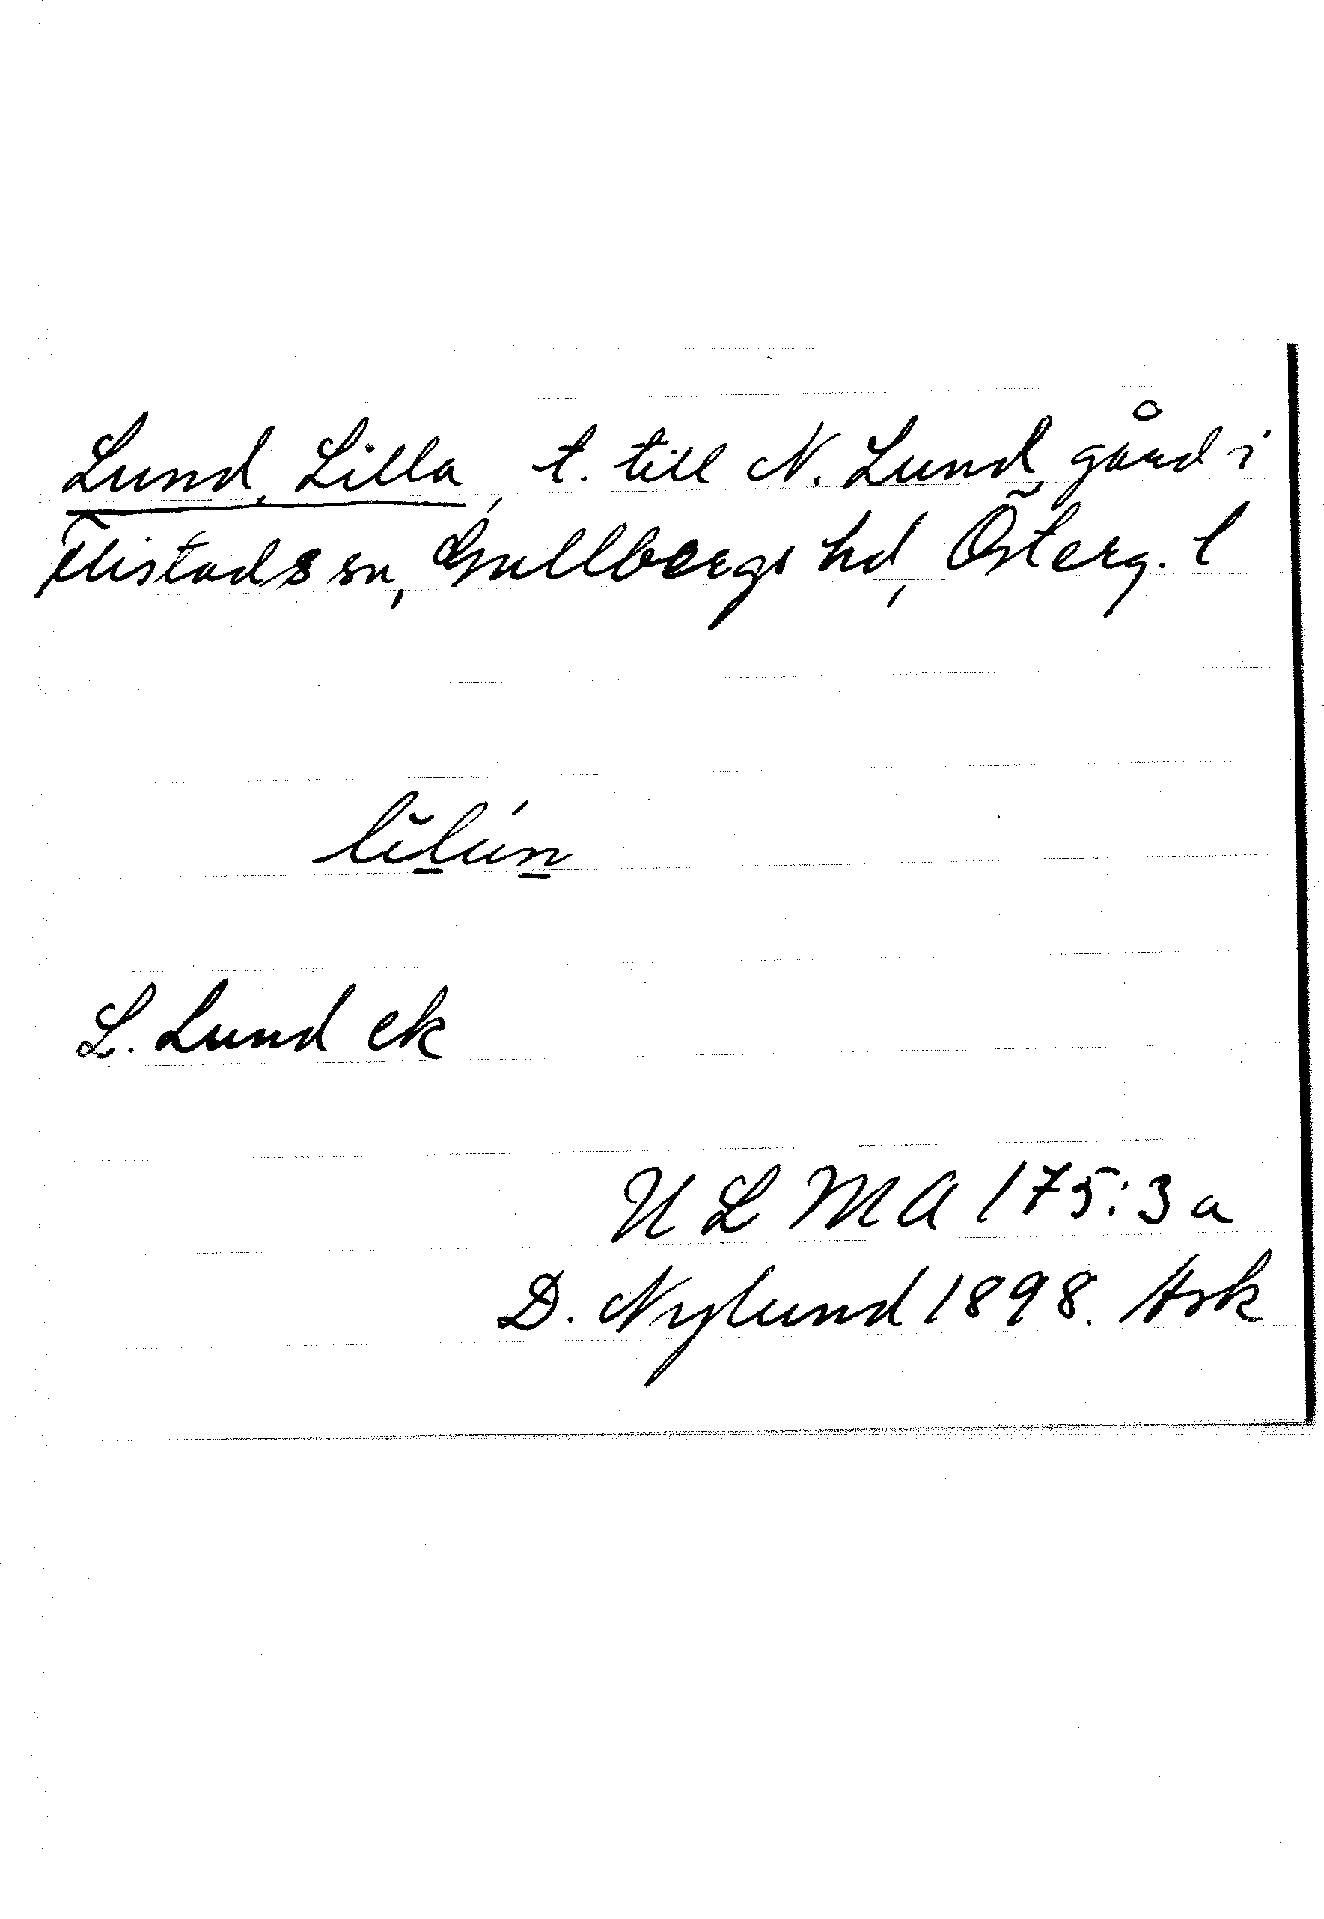 Lund, Lilla, t. till N. Lund, gård i
Flistads sn, Gullbergs hd, Österg. l
lĭl̲ún̲
L. Lund ek
ULMA 175:3a
D. Nylund 1898. Ask